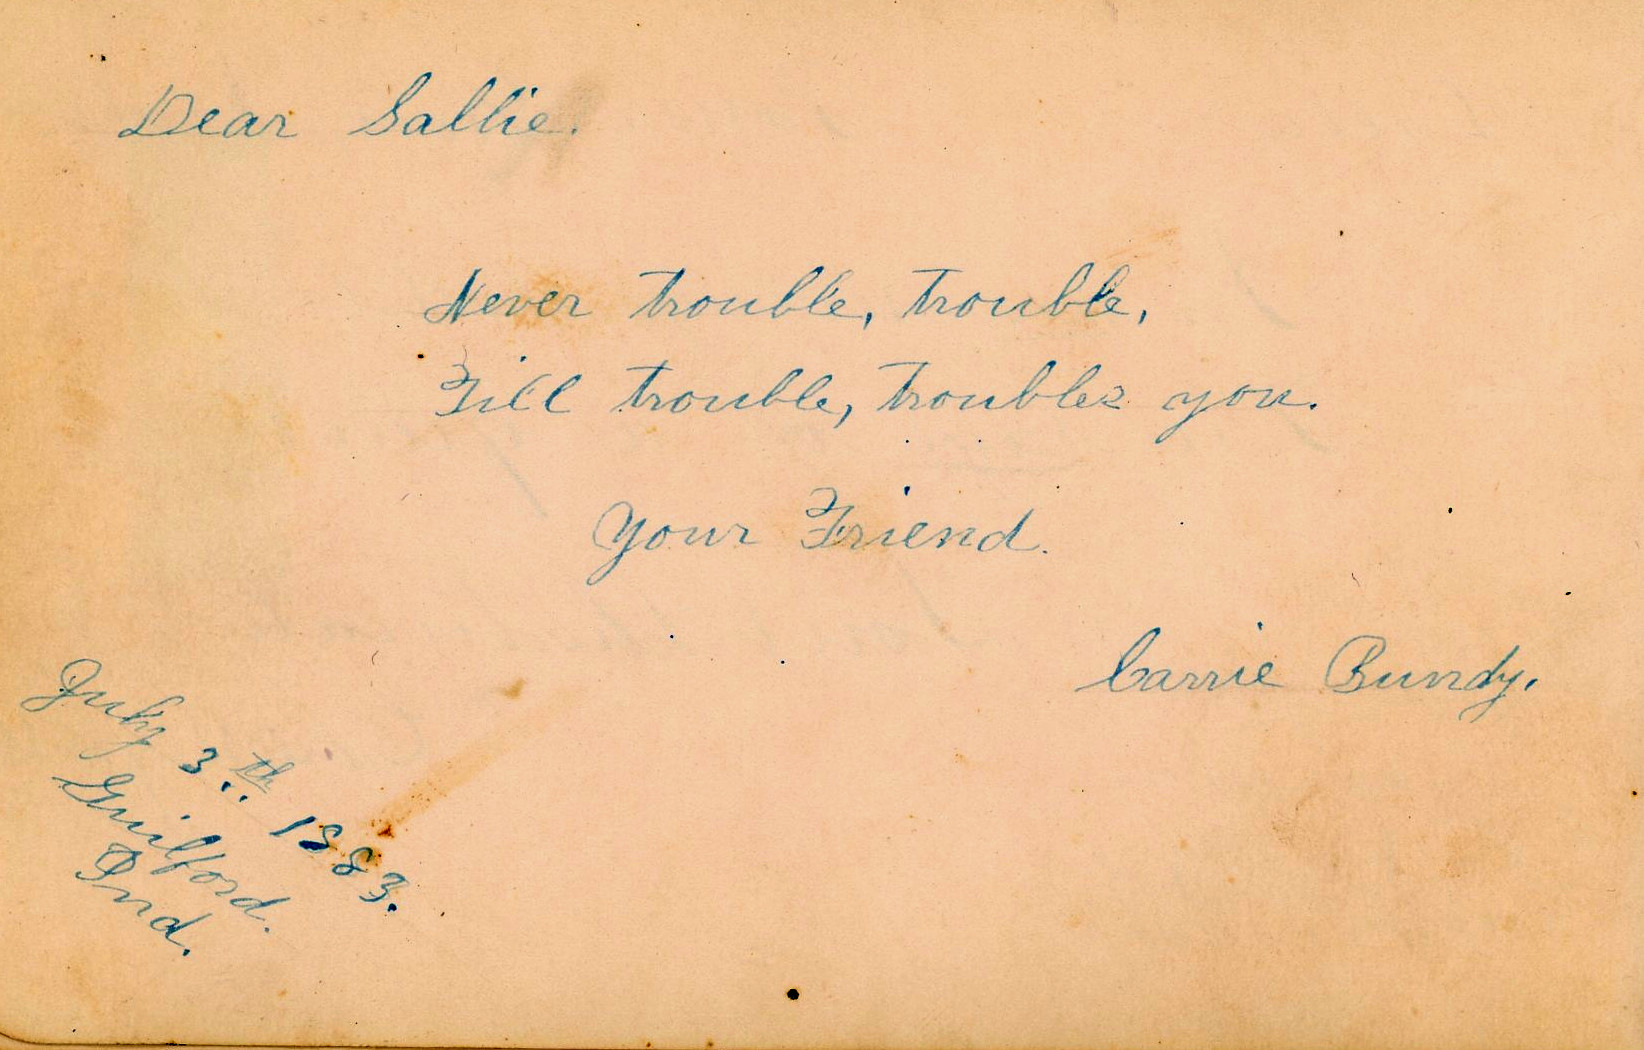 Dear Sallie.
Never trouble, trouble,
Till trouble, troubles you.
Your Friend.
Carrie Bundy.
July 3th 1883.
Guilford.
Ind.